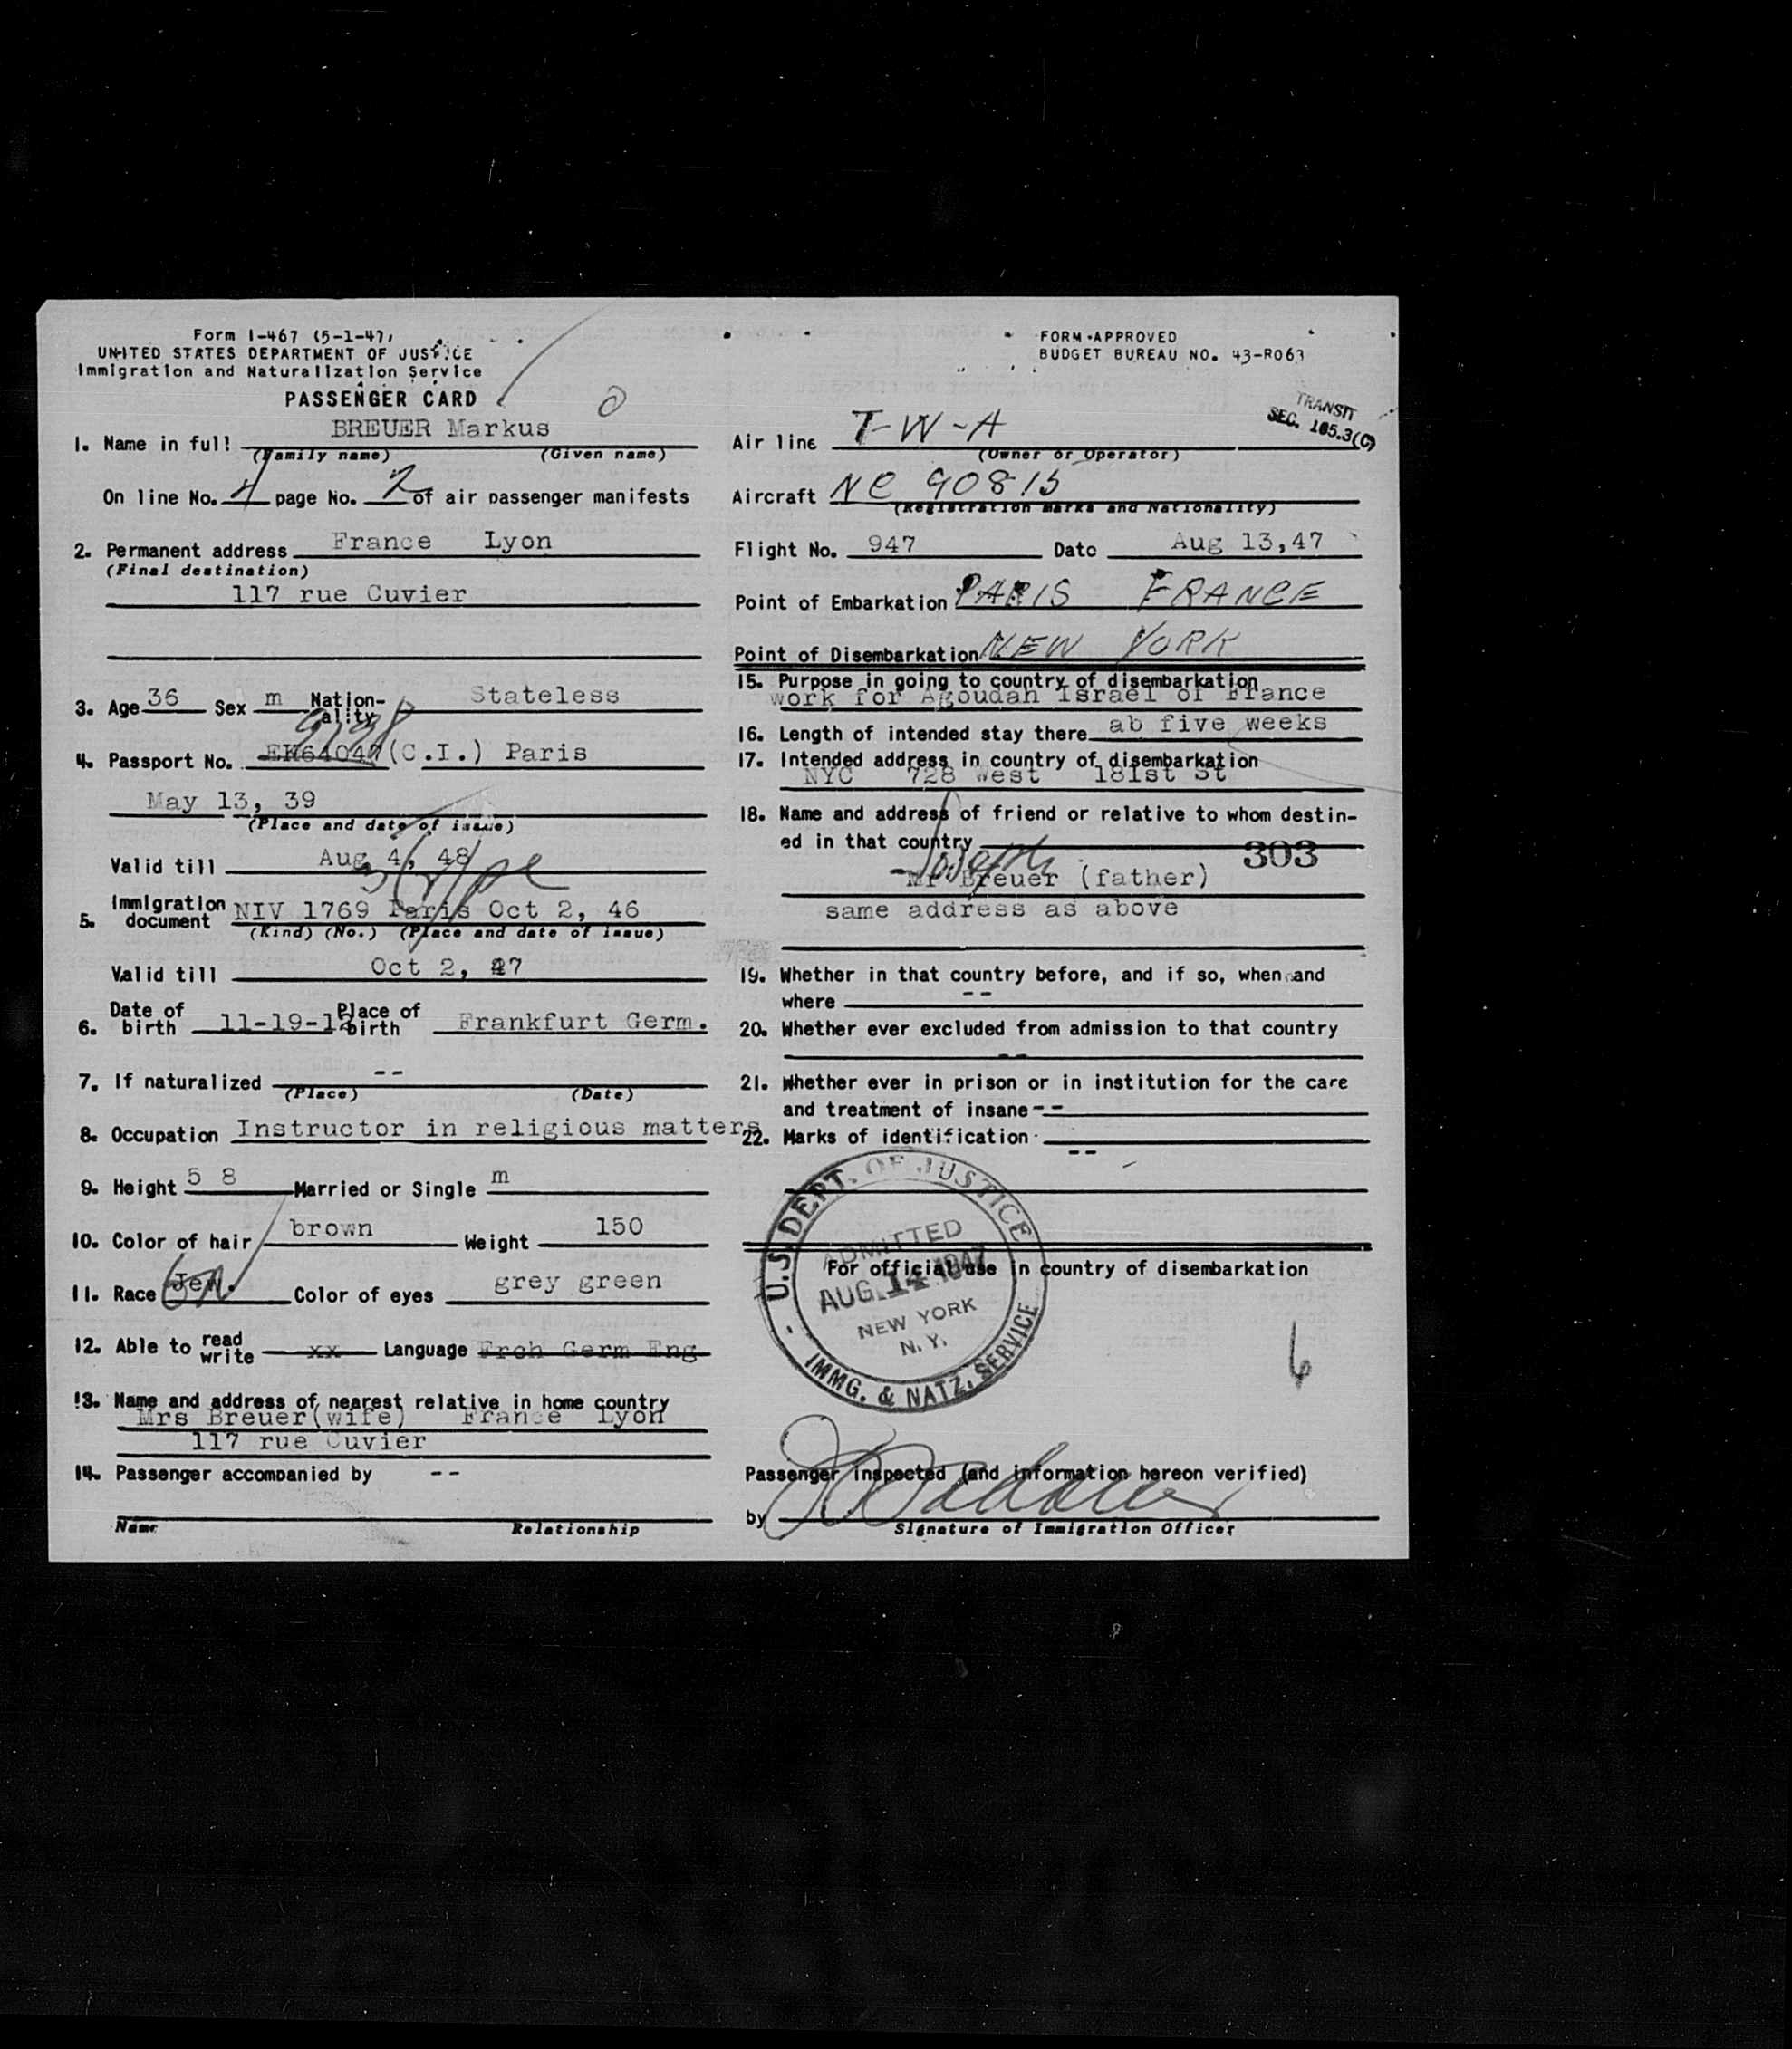 Form I-467 (5-1-47)
UNITED STATES DEPARTMENT OF JUSTICE
Immigration and Naturalization Service
PASSENGER CARD
FORM APPROVED
BUDGET BUREAU NO. 43-R063
TRANSIT
SEC. 105.3(C)
1. Name in full BREUER Markus
(Family name) (Given name)
On line No. 4 page No. 2 of air passenger manifests
2. Permanent address France Lyon
(Final destination)
117 rue Cuvier
3. Age 36 Sex m Nation-ality Stateless
4. Passport No. EH64047 (C.I.) Paris
May 13, 39
(Place and date of issue)
Valid till Aug 4, 48
5. Immigration document NIV 1769 Paris Oct 2, 46
(Kind) (No.) (Place and date of issue)
Valid till Oct 2, 47
6. Date of birth 11-19-12 Place of birth Frankfurt Germ.
7. If naturalized --
(Place) (Date)
8. Occupation Instructor in religious matters
9. Height 5 8 Married or Single m
10. Color of hair brown Weight 150
11. Race Jew. Color of eyes grey green
12. Able to read write xx Language Frch Germ Eng
13. Name and address of nearest relative in home country
Mrs Breuer(wife) France Lyon
117 rue Cuvier
14. Passenger accompanied by --
Name Relationship
Air line T-W-A
(Owner or Operator)
Aircraft NC 90815
(Registration marks and Nationality)
Flight No. 947 Date Aug 13,47
Point of Embarkation PARIS FRANCE
Point of Disembarkation NEW YORK
15. Purpose in going to country of disembarkation
work for Agoudah Israel of France
16. Length of intended stay there ab five weeks
17. Intended address in country of disembarkation
NYC 728 West 181st St
18. Name and address of friend or relative to whom destin-
ed in that country
303
Joseph
Mr Breuer (father)
same address as above
19. Whether in that country before, and if so, when and
where --
20. Whether ever excluded from admission to that country
--
21. Whether ever in prison or in institution for the care
and treatment of insane --
22. Marks of identification
--
U.S. DEPT. OF JUSTICE
ADMITTED
AUG 14 1947
NEW YORK
N.Y.
IMMG. & NATZ. SERVICE
For official use in country of disembarkation
6
Passenger inspected (and information hereon verified)
by
Signature of Immigration Officer